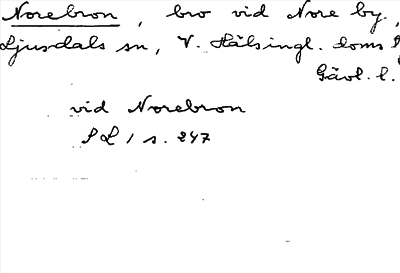 Norebron, bro vid Nore by,
Ljusdals sn, V. Hälsingl. doms
Gävl. l.
vid Norebron
SL 1 s. 247